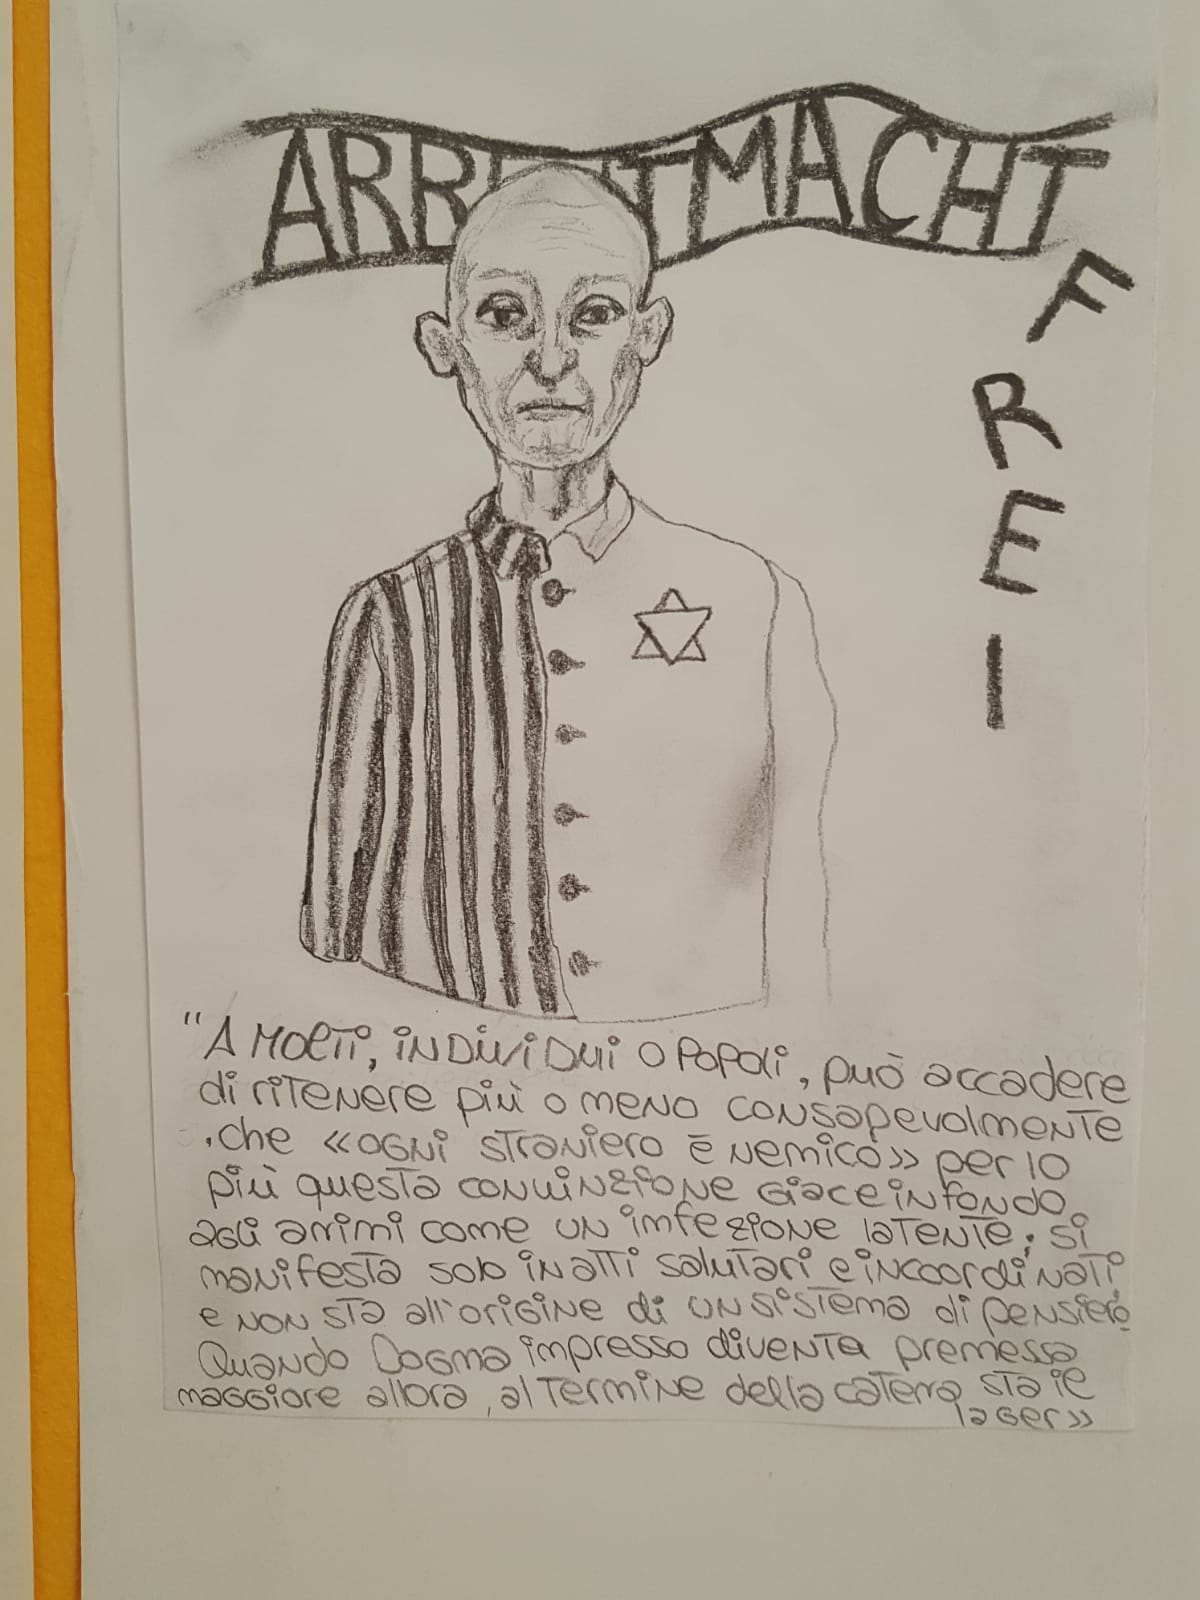 ARBEIT MACHT
FREI
"A MOLTI, iNDiViDUi O POPOLi, può accadere
di riTENere più o meno consapevolmenTe
che «OGNi STraNiero È Nemico» per lo
più questa convinzione Giace in fondo
agli animi come un imfezione laTENTe; si
manifesta solo in atti salutari e incoordinati,
e non sta all'origine di un sistema di pensiero
Quando Dogma impresso diventa premessa
maggiore allora, al Termine della catena sta il
lager»